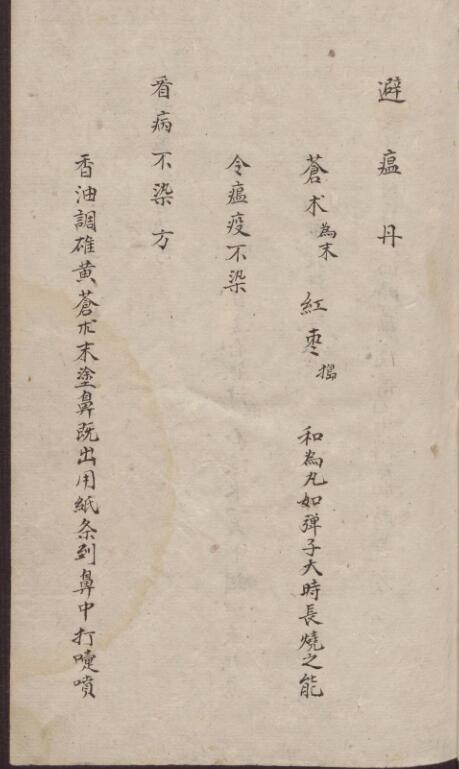 避瘟丹
蒼朮為末 紅枣搗 和為丸如弹子大時長燒之能
令瘟疫不染
看病不染方
香油調雄黄蒼朮末塗鼻既出用紙条到鼻中打嚏噴